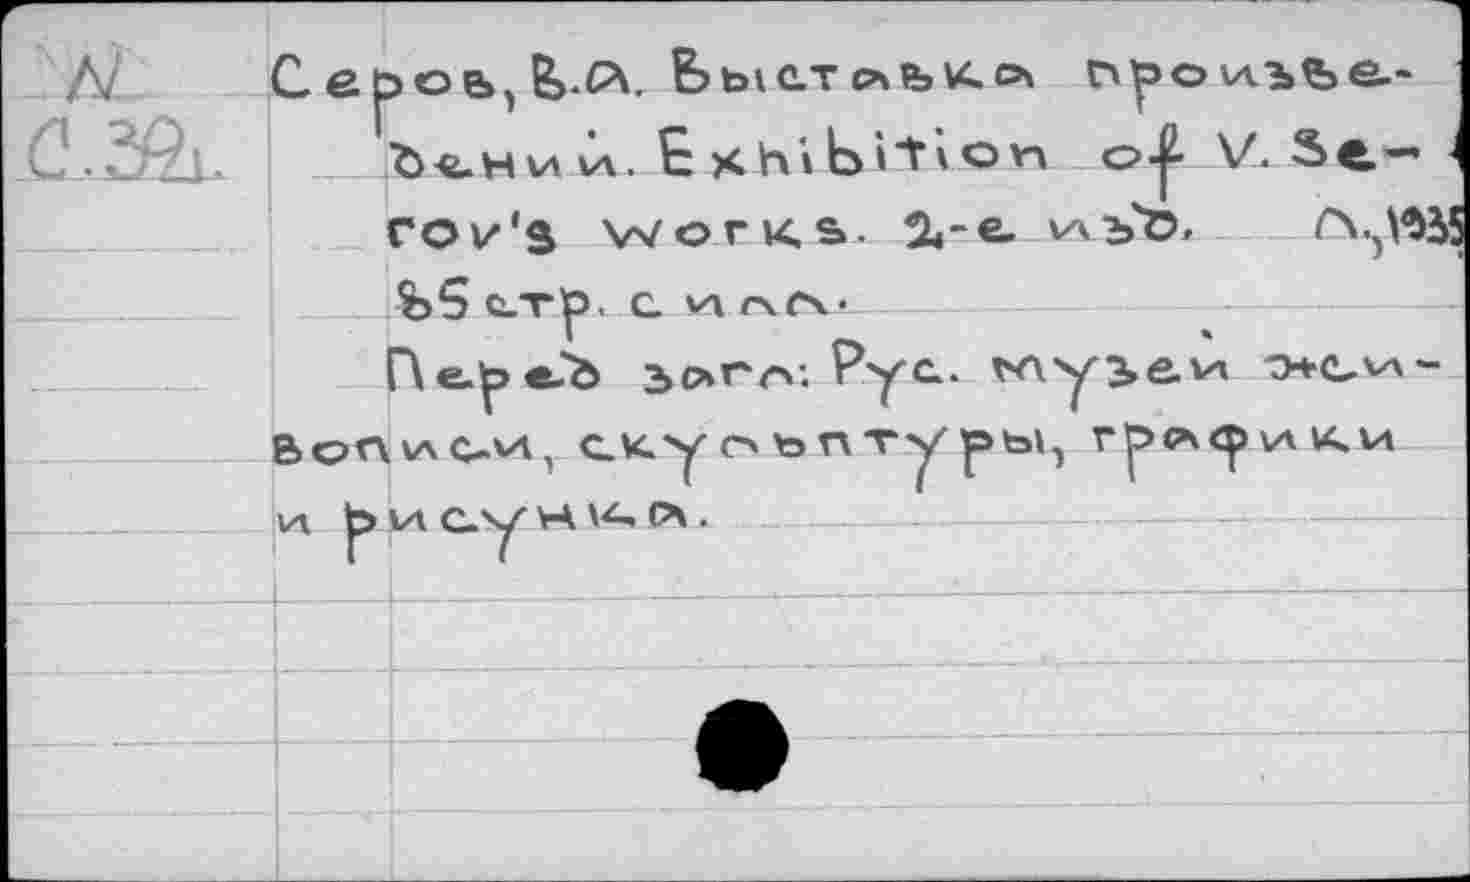 N
С.321.
Серов, В.А. Выставка произве-
дений. Exhibition of V. Se-
rov's works. 2-е изд. Л., 1935
85 стр. с илл.
Перед загл: Рус. музей жи-
вописи, скульптуры, графики
и рисунка.